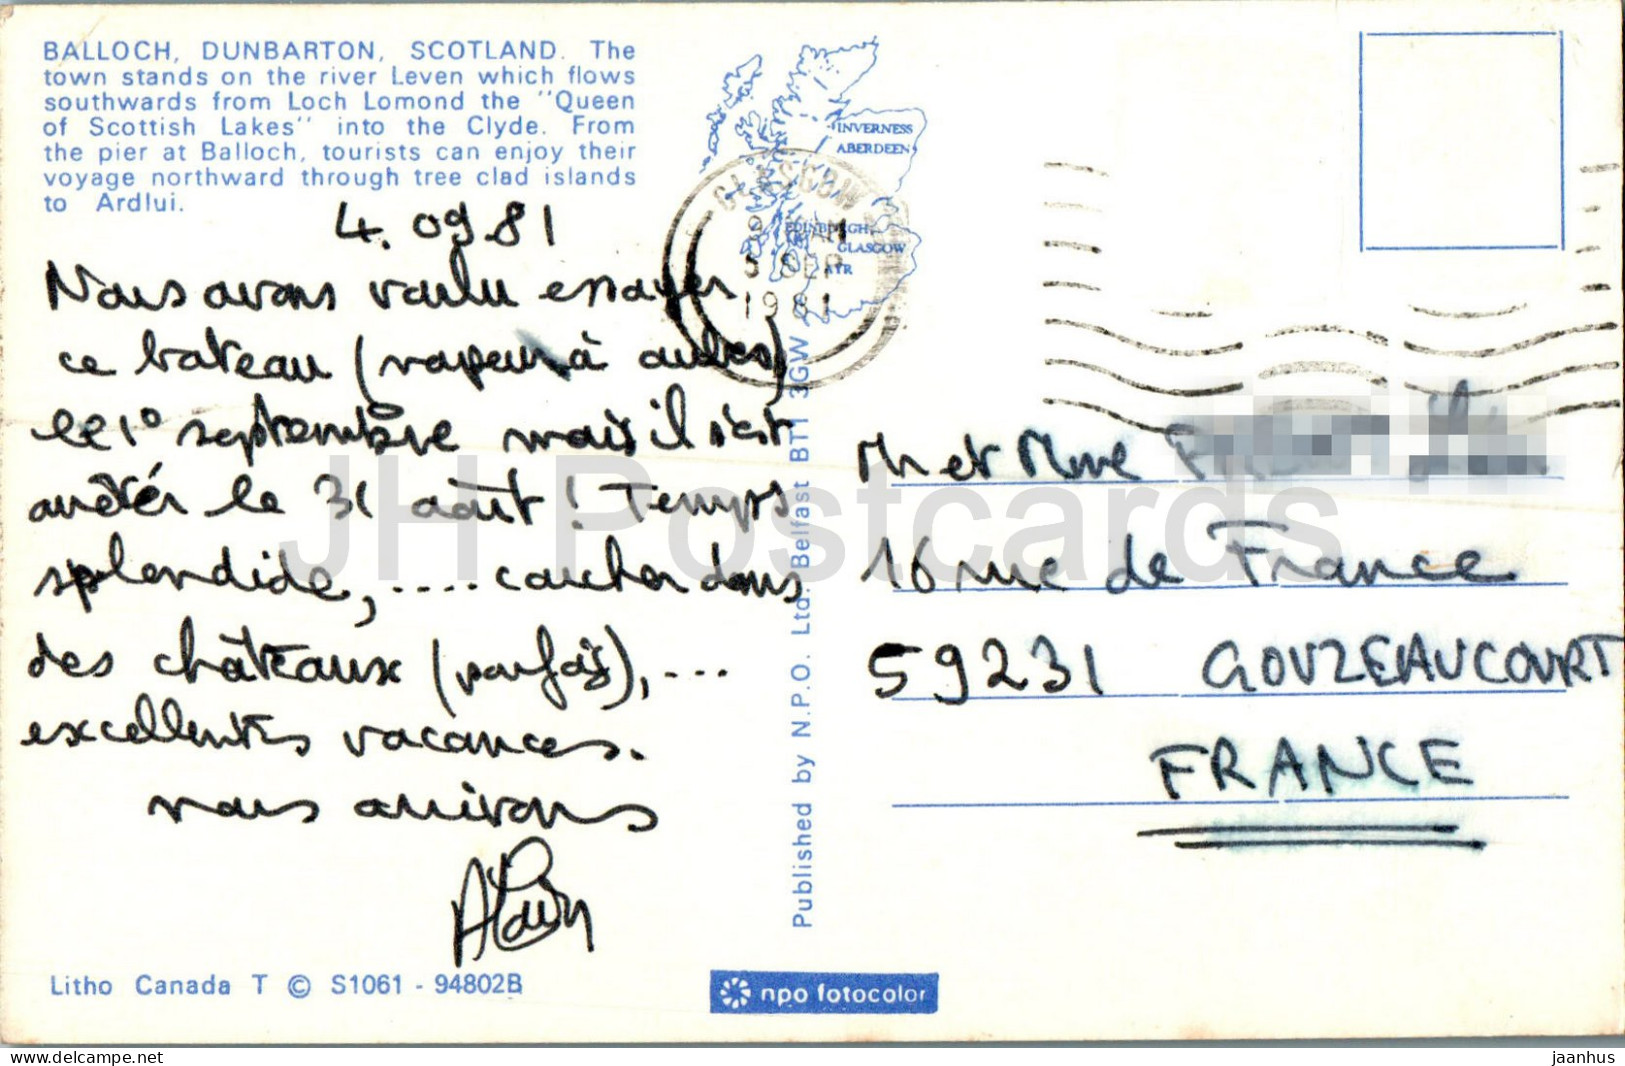 BALLOCH, DUNBARTON, SCOTLAND. The
town stands on the river Leven which flows
southwards from Loch Lomond the "Queen
of Scottish Lakes" into the Clyde. From
the pier at Balloch, tourists can enjoy their
voyage northward through tree clad islands
to Ardlui.
4.09.81
Nous avons voulu essayer
ce bateau (vapeur à aubes)
le 1° septembre mais il s'est
arrêtér le 31 août ! Temps
splendide, .... coucher dans
des châteaux (parfois), ...
excellentes vacances.
nous arrivons
Alain
Litho Canada T © S1061 - 94802B
INVERNESS
ABERDEEN
EDINBURGH
GLASGOW
AYR
GLASGOW
AM
5 SEP
1981
Published by N.P.O. Ltd. Belfast BT1 3GW
npo fotocolor
M et Mme
16 rue de France
59231 GOUZEAUCOURT
FRANCE
JH Postcards
www.delcampe.net
jaanhus